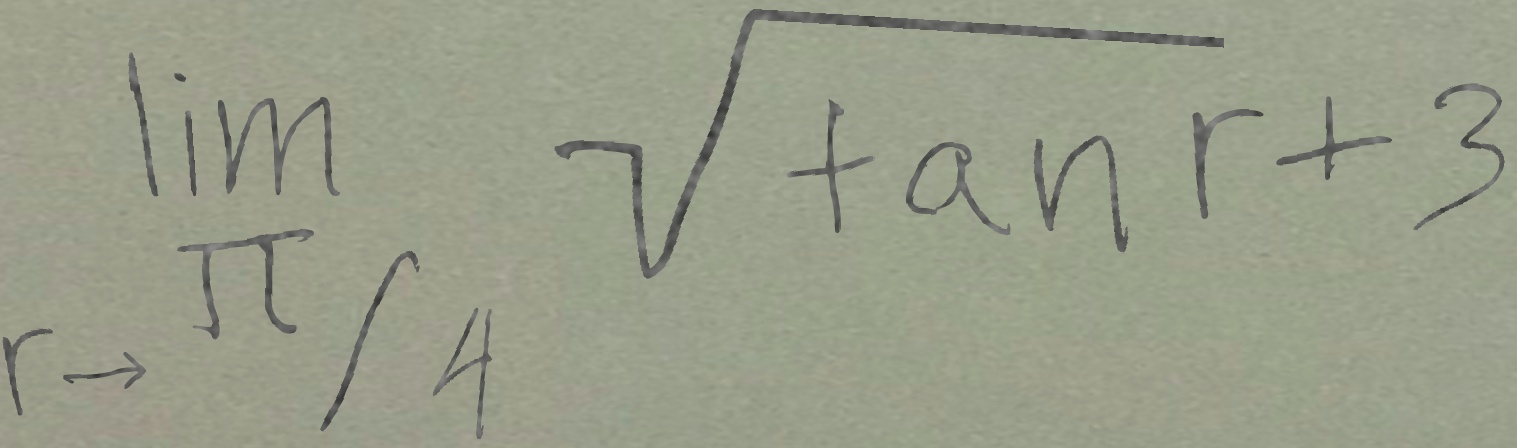 lim_{r→π/4} √(tan r + 3)